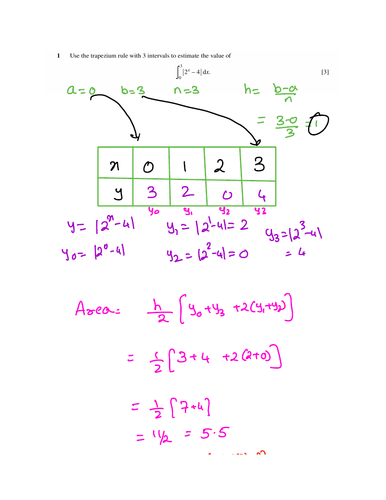 1 Use the trapezium rule with 3 intervals to estimate the value of
∫₀³ |2ˣ − 4| dx. [3]
a=0 b=3 n=3 h= b-a/n
= 3-0/3 = 1
x 0 1 2 3
y 3 2 0 4
y₀ y₁ y₂ y₃
y= |2ˣ-4| y₁= |2¹-4|= 2 y₃=|2³-4|
y₀= |2⁰-4| y₂ = |2²-4|= 0 = 4
Area= h/2 [y₀+y₃ +2(y₁+y₂)]
= 1/2 [3+4 +2(2+0)]
= 1/2 [7+4]
= 11/2 = 5.5